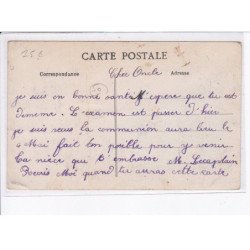 25€
CARTE POSTALE
Correspondance Cher Oncle Adresse
je suis en bonne santé espere que tu est
de meme. L'examen est passer d'hier
je suis sous la communion aura lieu le
Mai fait ton posible pour y venir.
ta niece qui t'embrasse M. Lecapitain
Ecrris Moi quand tu auras cette carte